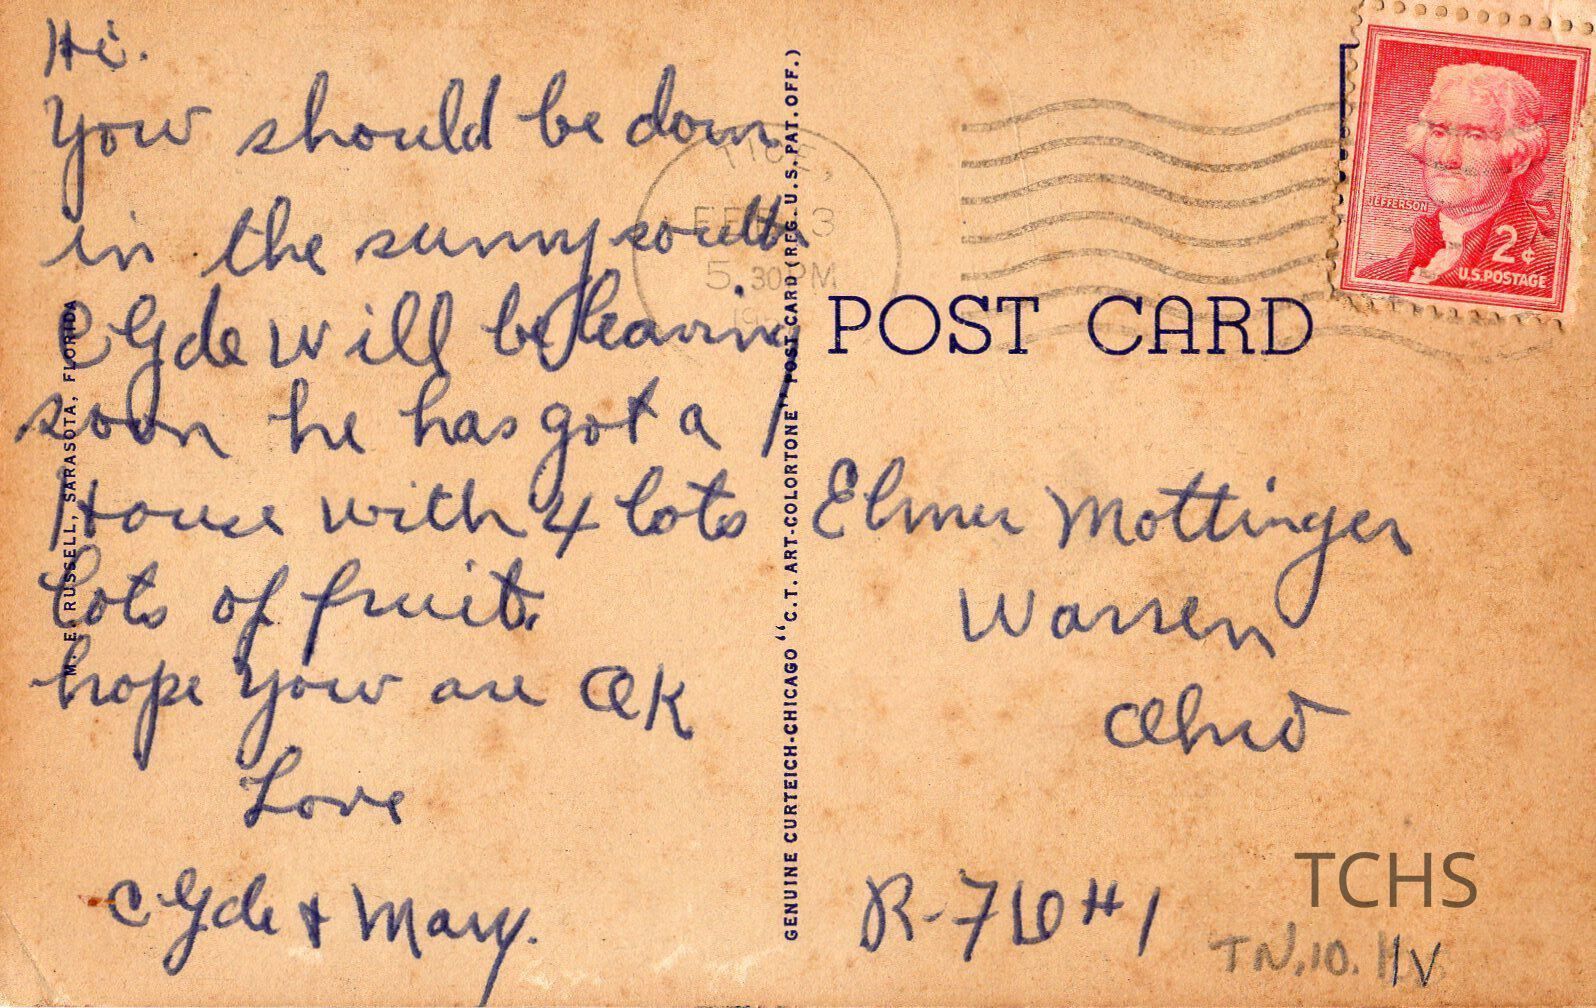 Hi.
You should be down
in the sunny south
Clyde will be leaving
soon he has got a
House with 4 lots
lots of fruit.
hope you are OK
Love
Clyde & Mary.
M. E. RUSSELL, SARASOTA, FLORIDA
GENUINE CURTEICH-CHICAGO "C.T. ART-COLORTONE" POST CARD (REG. U.S. PAT. OFF.)
FEB 3
5.30 PM
JEFFERSON
2¢
U.S. POSTAGE
POST CARD
Elmer Mottinger
Warren
Ohio
TCHS